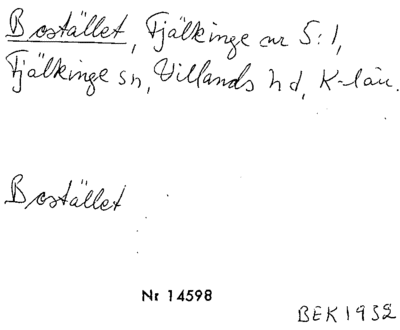 Bostället, Fjälkinge nr 5:1,
Fjälkinge sn, Villands hd, K-län.
Bostället
Nr 14598
BEK 1932